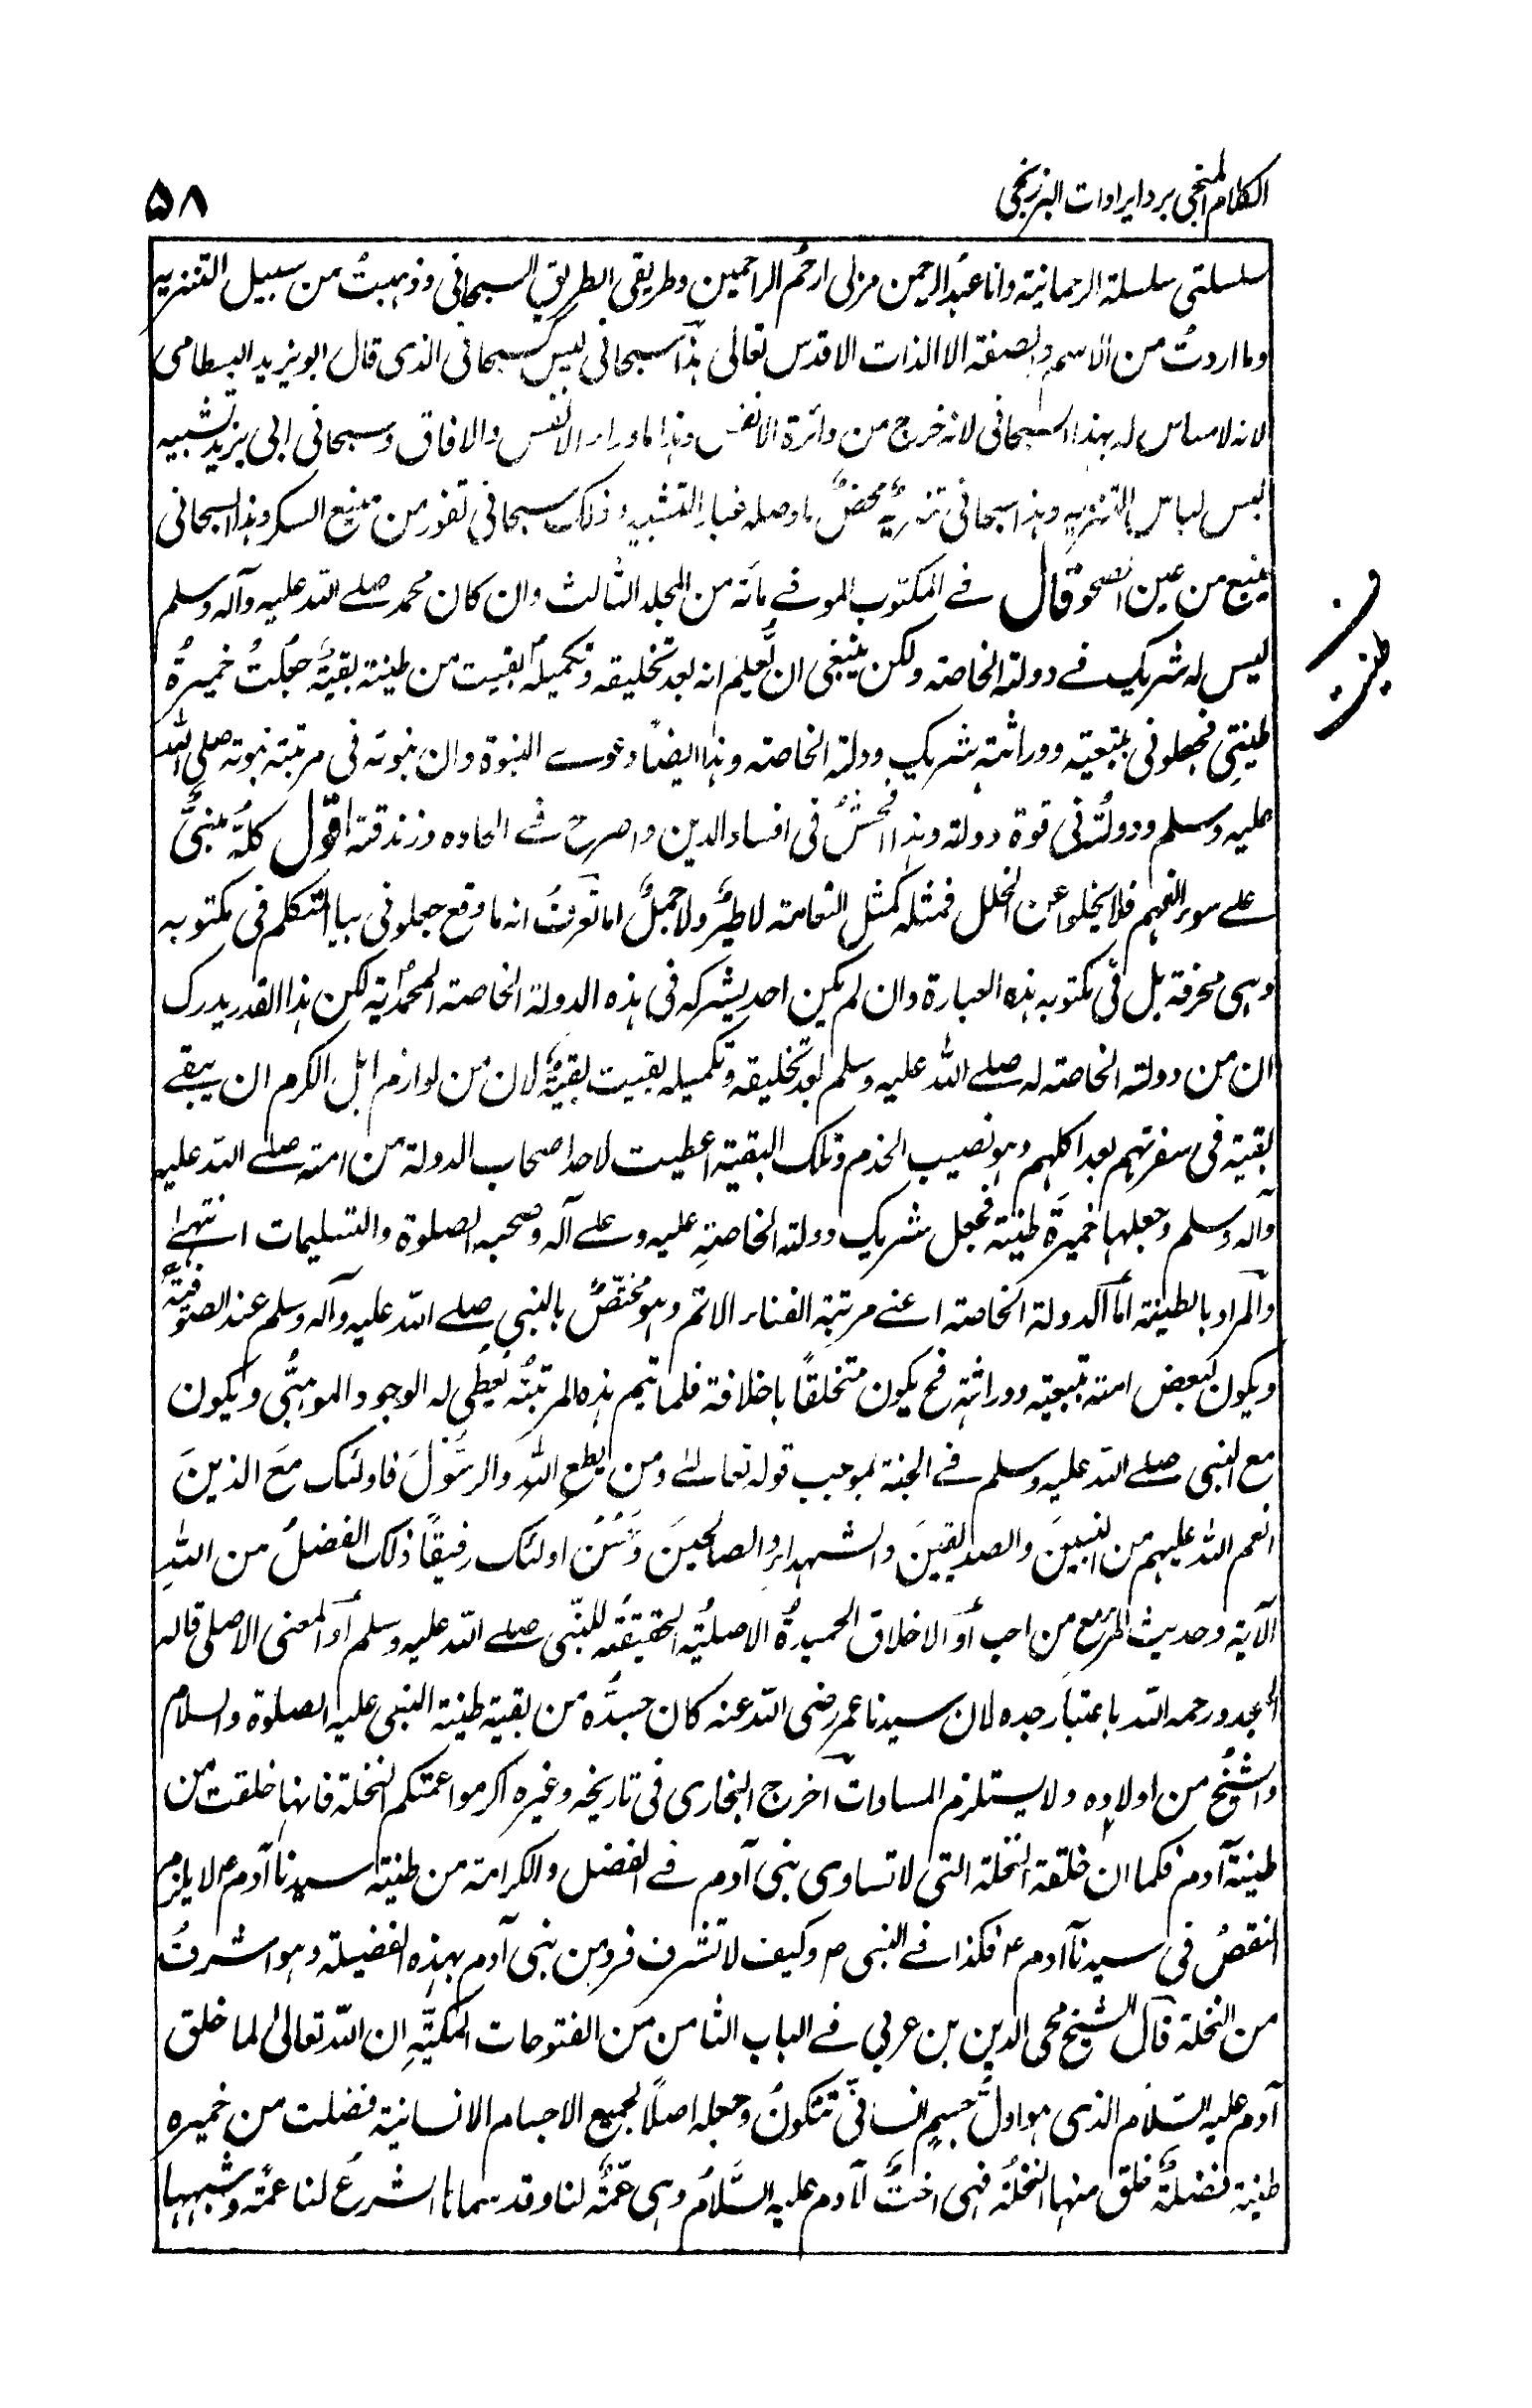 الكلام المنجي برد ايرادات البرزنجي
۵۸
سلسلتي سلسلة الرحمانية وانا عبدُ الرحمن مزلى ارحمُ الراحمين وطريقي الطريق السبحاني وذهبتُ من سبيل التنزيه
وما اردتُ من الاسم والصفة الا الذات الاقدس تعالى هذا سبحاني ليس كسبحاني الذى قال ابو يزيد البسطامى
لانه لا مساس له بهذا السبحاني لانه خرج من دائرة الانفس وهذا ماوراء الانفس والافاق وسبحاني ابى يزيد تشبيه
لبس لباس التنزيه وهذا سبحاني تنزيهٌ محضٌ ما وصله غبار التشبيه وذلك سبحاني تفور من منبع السكر وهذا السبحانى
ينبع من عين الصحو قال فے المكتوب الموفے مائة من المجلد الثالث وان كان محمد صلے الله عليه وآله وسلم
ليس له شريك فے دولته الخاصته ولكن ينبغى ان يُّعلم انه بعد تخليقه وتكميله بقيت من طينته بقيةٌ جعلتُ خميرةُ
طينتي فجعلونى بتبعيته ووراثته شريك دولته الخاصته وهذا ايضًا دعوے النبوة وان نبوته فى مرتبة نبوته صلى الله
عليه وسلم ودولتُه في قوة دولته وهذا افحشُ فى افساد الدين واصرح فے الحاده وزندقته اقول كلُّه مبنىٌّ
علے سوء الفهم فلا يخلوا عن الخلل فمثله كمثل النعامة لا طيرٌ ولا جملٌ اما تعرفُ انه ما وقع جعلونى بياء المتكلم فى مكتوبه
وهى محرفة بل فى مكتوبه هذه العبارة وان لم يكن احد يشركه فى هذه الدولة الخاصة المحمدية لكن هذا القدر يدرك
ان من دولته الخاصته له صلے الله عليه وسلم بعد تخليقه وتكميله بقيت بقيةٌ لان من لوازم اهل الكرم ان يبقے
بقية فى سفرتهم بعد اكلهم وهو نصيب الخدم وتلك البقية اعطيت لاحد اصحاب الدولة من امته صلے الله عليه
وآله وسلم وجعلها خميرةَ طينته فجعل شريك دولته الخاصةِ عليه وعلے آله وصحبه الصلوة والتسليمات انتهےٰ
والمراد بالطينة اما الدولة الخاصته اعنے مرتبة الفناء الاتم وهو مختصٌّ بالنبي صلے الله عليه وآله وسلم عند الصوفيةِ
ويكون لبعض امته بتبعيته ووراثته فح يكون متخلقًا باخلافة فلما تيم هذه المرتبتُه يُعطى له الوجود الموهبىُّ ويكون
مع النبى صلے الله عليه وسلم فے الجنة بموجب قوله تعالےٰ ومن يطع اللهَ والرسُولَ فاولئك مَعَ الذينَ
انعم الله عليهم من النبيينَ والصديقينَ والشهداءِ والصالحينَ وَحَسُنَ اولئك رفيقًا ذلك الفضلُ من اللهِ
الآية وحديث المرءُ مع من احب أو الاخلاق الحميدةُ الاصليُّة الحقيقُّه للنّبي صلے الله عليه وسلم أو المعنى الاصلى قاله
المجدد رحمه الله باعتبار جده لان سيدنا عمر رضى الله عنه كان جسدُه من بقية طينة النبى عليه الصلوة والسلام
والشيخُ من اولاده ولا يستلزم المساوات اخرج البخارى فى تاريخه وغيره اكرموا عمتكم النخلة فانها خلقت من
طينة آدم فكما ان خلقة النخلة التى لا تساوى بنى آدم فے الفضل والكرامة من طينة سيدنا آدم ع لا يلزم
النقصُ فى سيدنا آدم ع فكذا فے النبى ص وكيف لا تشرف فرد من بنى آدم بهذه الفضيلة وهو اشرفُ
من النخلة قال الشيخ محى الدين بن عربي فے الباب الثامن من الفتوحات المكيَّةِ ان الله تعالىٰ لما خلق
آدم عليه السّلام الذى هو اولُ جسمٍ انسانىّ تتكونُ وجعله اصلًا لجميع الاجسام الانسانية فضلت من خميره
طينة فضلةٌ خلق منها النخلُة فهى اختٌ لآدم عليه السَّلامُ وهى عمّتٌه لنا وقد سماها الشرعُ لنا عمّته وشبهها